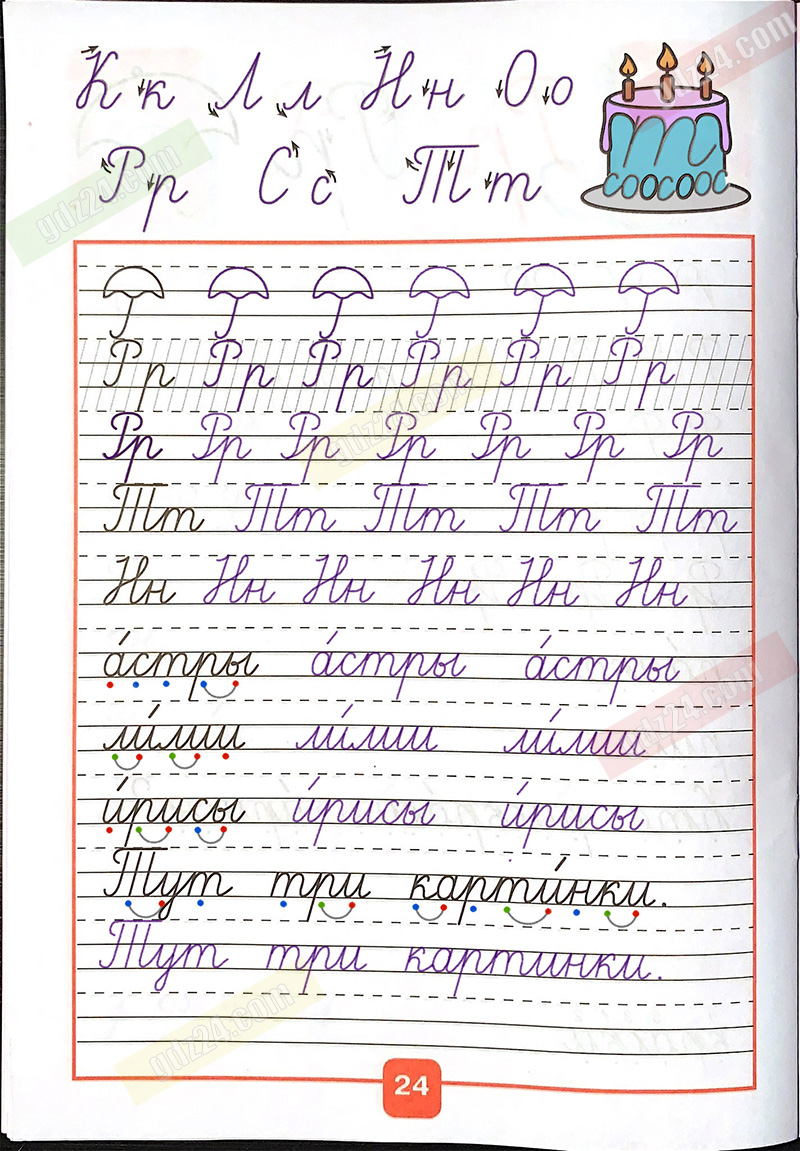 К к Л л Н н О о
Р р С с Т т
т
соосоос
Рр Рр Рр Рр Рр Рр
Рр Рр Рр Рр Рр Рр Рр
Тт Тт Тт Тт Тт
Нн Нн Нн Нн Нн Нн
а́стры а́стры а́стры
ли́лии ли́лии ли́лии
и́рисы и́рисы и́рисы
Тут три карти́нки.
Тут три картинки.
24
gdz24.com
gdz24.com
gdz24.com
gdz24.com
gdz24.com